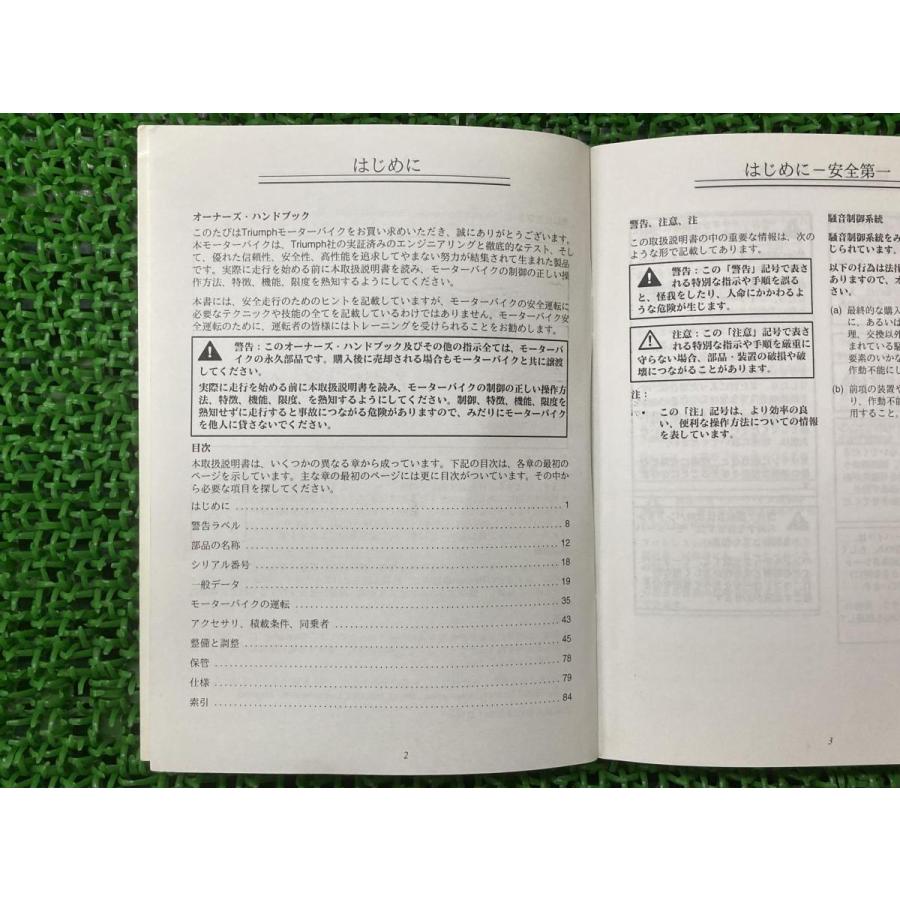 はじめに
オーナーズ・ハンドブック
このたびはTriumphモーターバイクをお買い求めいただき、誠にありがとうございます。
本モーターバイクは、Triumph社の実証済みのエンジニアリングと徹底的なテスト、そし
て、優れた信頼性、安全性、高性能を追求してやまない努力が結集されて生まれた製品
です。実際に走行を始める前に本取扱説明書を読み、モーターバイクの制御の正しい操
作方法、特徴、機能、限度を熟知するようにしてください。
本書には、安全走行のためのヒントを記載していますが、モーターバイクの安全運転に
必要なテクニックや技能の全てを記載しているわけではありません。モーターバイク安
全運転のために、運転者の皆様にはトレーニングを受けられることをお勧めします。
警告：このオーナーズ・ハンドブック及びその他の指示全ては、モーターバ
イクの永久部品です。購入後に売却される場合もモーターバイクと共に譲渡
してください。
実際に走行を始める前に本取扱説明書を読み、モーターバイクの制御の正しい操作方
法、特徴、機能、限度、を熟知するようにしてください。制御、特徴、機能、限度を
熟知せずに走行すると事故につながる危険がありますので、みだりにモーターバイク
を他人に貸さないでください。
目次
本取扱説明書は、いくつかの異なる章から成っています。下記の目次は、各章の最初の
ページを示しています。主な章の最初のページには更に目次がついています。その中か
ら必要な項目を探してください。
はじめに 1
警告ラベル 8
部品の名称 12
シリアル番号 18
一般データ 19
モーターバイクの運転 35
アクセサリ、積載条件、同乗者 43
整備と調整 45
保管 78
仕様 79
索引 84
2
はじめに－安全第一
警告、注意、注
この取扱説明書の中の重要な情報は、次の
ような形で記載してあります。
警告：この「警告」記号で表さ
れる特別な指示や手順を誤る
と、怪我をしたり、人命にかかわるよ
うな危険が生じます。
注意：この「注意」記号で表さ
れる特別な指示や手順を厳重に
守らない場合、部品・装置の破損や破
壊につながることがあります。
注：
• この「注」記号は、より効率の良
い、便利な操作方法についての情報
を表しています。
騒音制御系統
騒音制御系統をみ
じられています。
以下の行為は法律
ありますので、オ
さい。
(a) 最終的な購入
に、あるいは
理、交換以外
まれている騒
要素のいかな
作動不能にし
(b) 前項の装置や
り、作動不能
用すること。
3